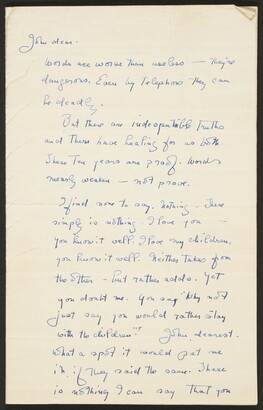 John dear -
Words are worse than useless — they're
dangerous. Even by telephone they can
be deadly.
But there are indisputable truths
and these have healing for us both.
These ten years are proof. Words
merely weaken — not prove.
I find now to say, nothing. There
simply is nothing. I love you —
you know it well. I love my children,
you know it well. Neither takes from
the other — but rather adds. Yet
you doubt me. You say "Why not
just say you would rather stay
with the children"! John, dearest.
What a spot it would put me
in, if they said the same. There
is nothing I can say that you